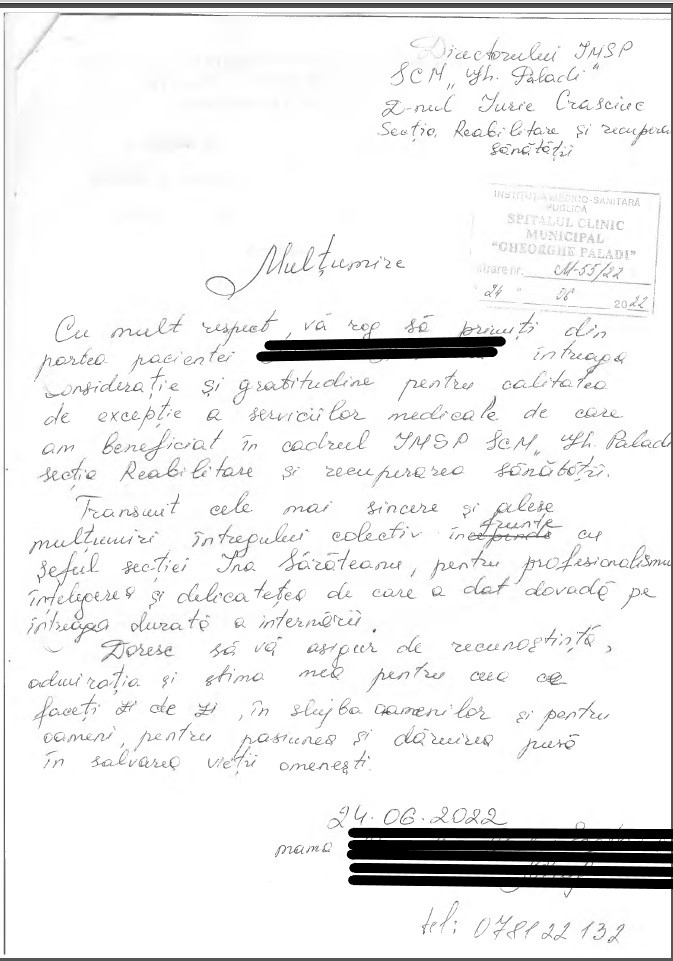 Directorului IMSP
SCM „Gh. Paladi"
D-nul Iurie Crasciuc
Secția Reabilitare și recupera
sănătății
INSTITUȚIA MEDICO-SANITARĂ
PUBLICĂ
SPITALUL CLINIC
MUNICIPAL
"GHEORGHE PALADI"
trare nr. M-55/22
" 24 " 06 2022
Mulțumire
Cu mult respect, vă rog să primiți din
partea pacientei întreaga
considerație și gratitudine pentru calitatea
de excepție a serviciilor medicale, de care
am beneficiat în cadrul IMSP SCM „Gh. Paladi
secția Reabilitare și recuperarea sănătății.
Transmit cele mai sincere și alese
frunte
mulțumiri întregului colectiv în cu
șeful secției Ina Sărăteanu, pentru profesionalismu
înțelegerea și delicatețea de care a dat dovadă pe
întreaga durată a internării.
Doresc să vă asigur de recunoștință,
admirația și stima mea pentru ceea ce
faceți zi de zi, în slujba oamenilor și pentru
oameni, pentru pasiunea și dăruirea pusă
în salvarea vieții omenești.
24.06.2022
mama
tel: 078122132